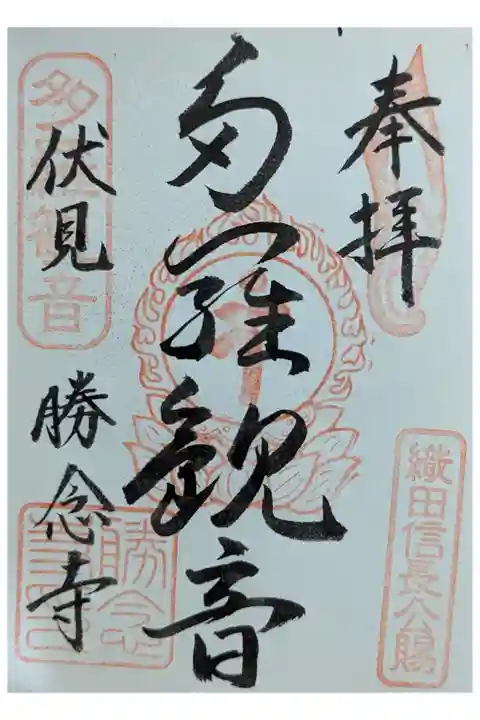 奉拝
織田信長公賜
多羅観音
多羅観音
伏見
勝念寺